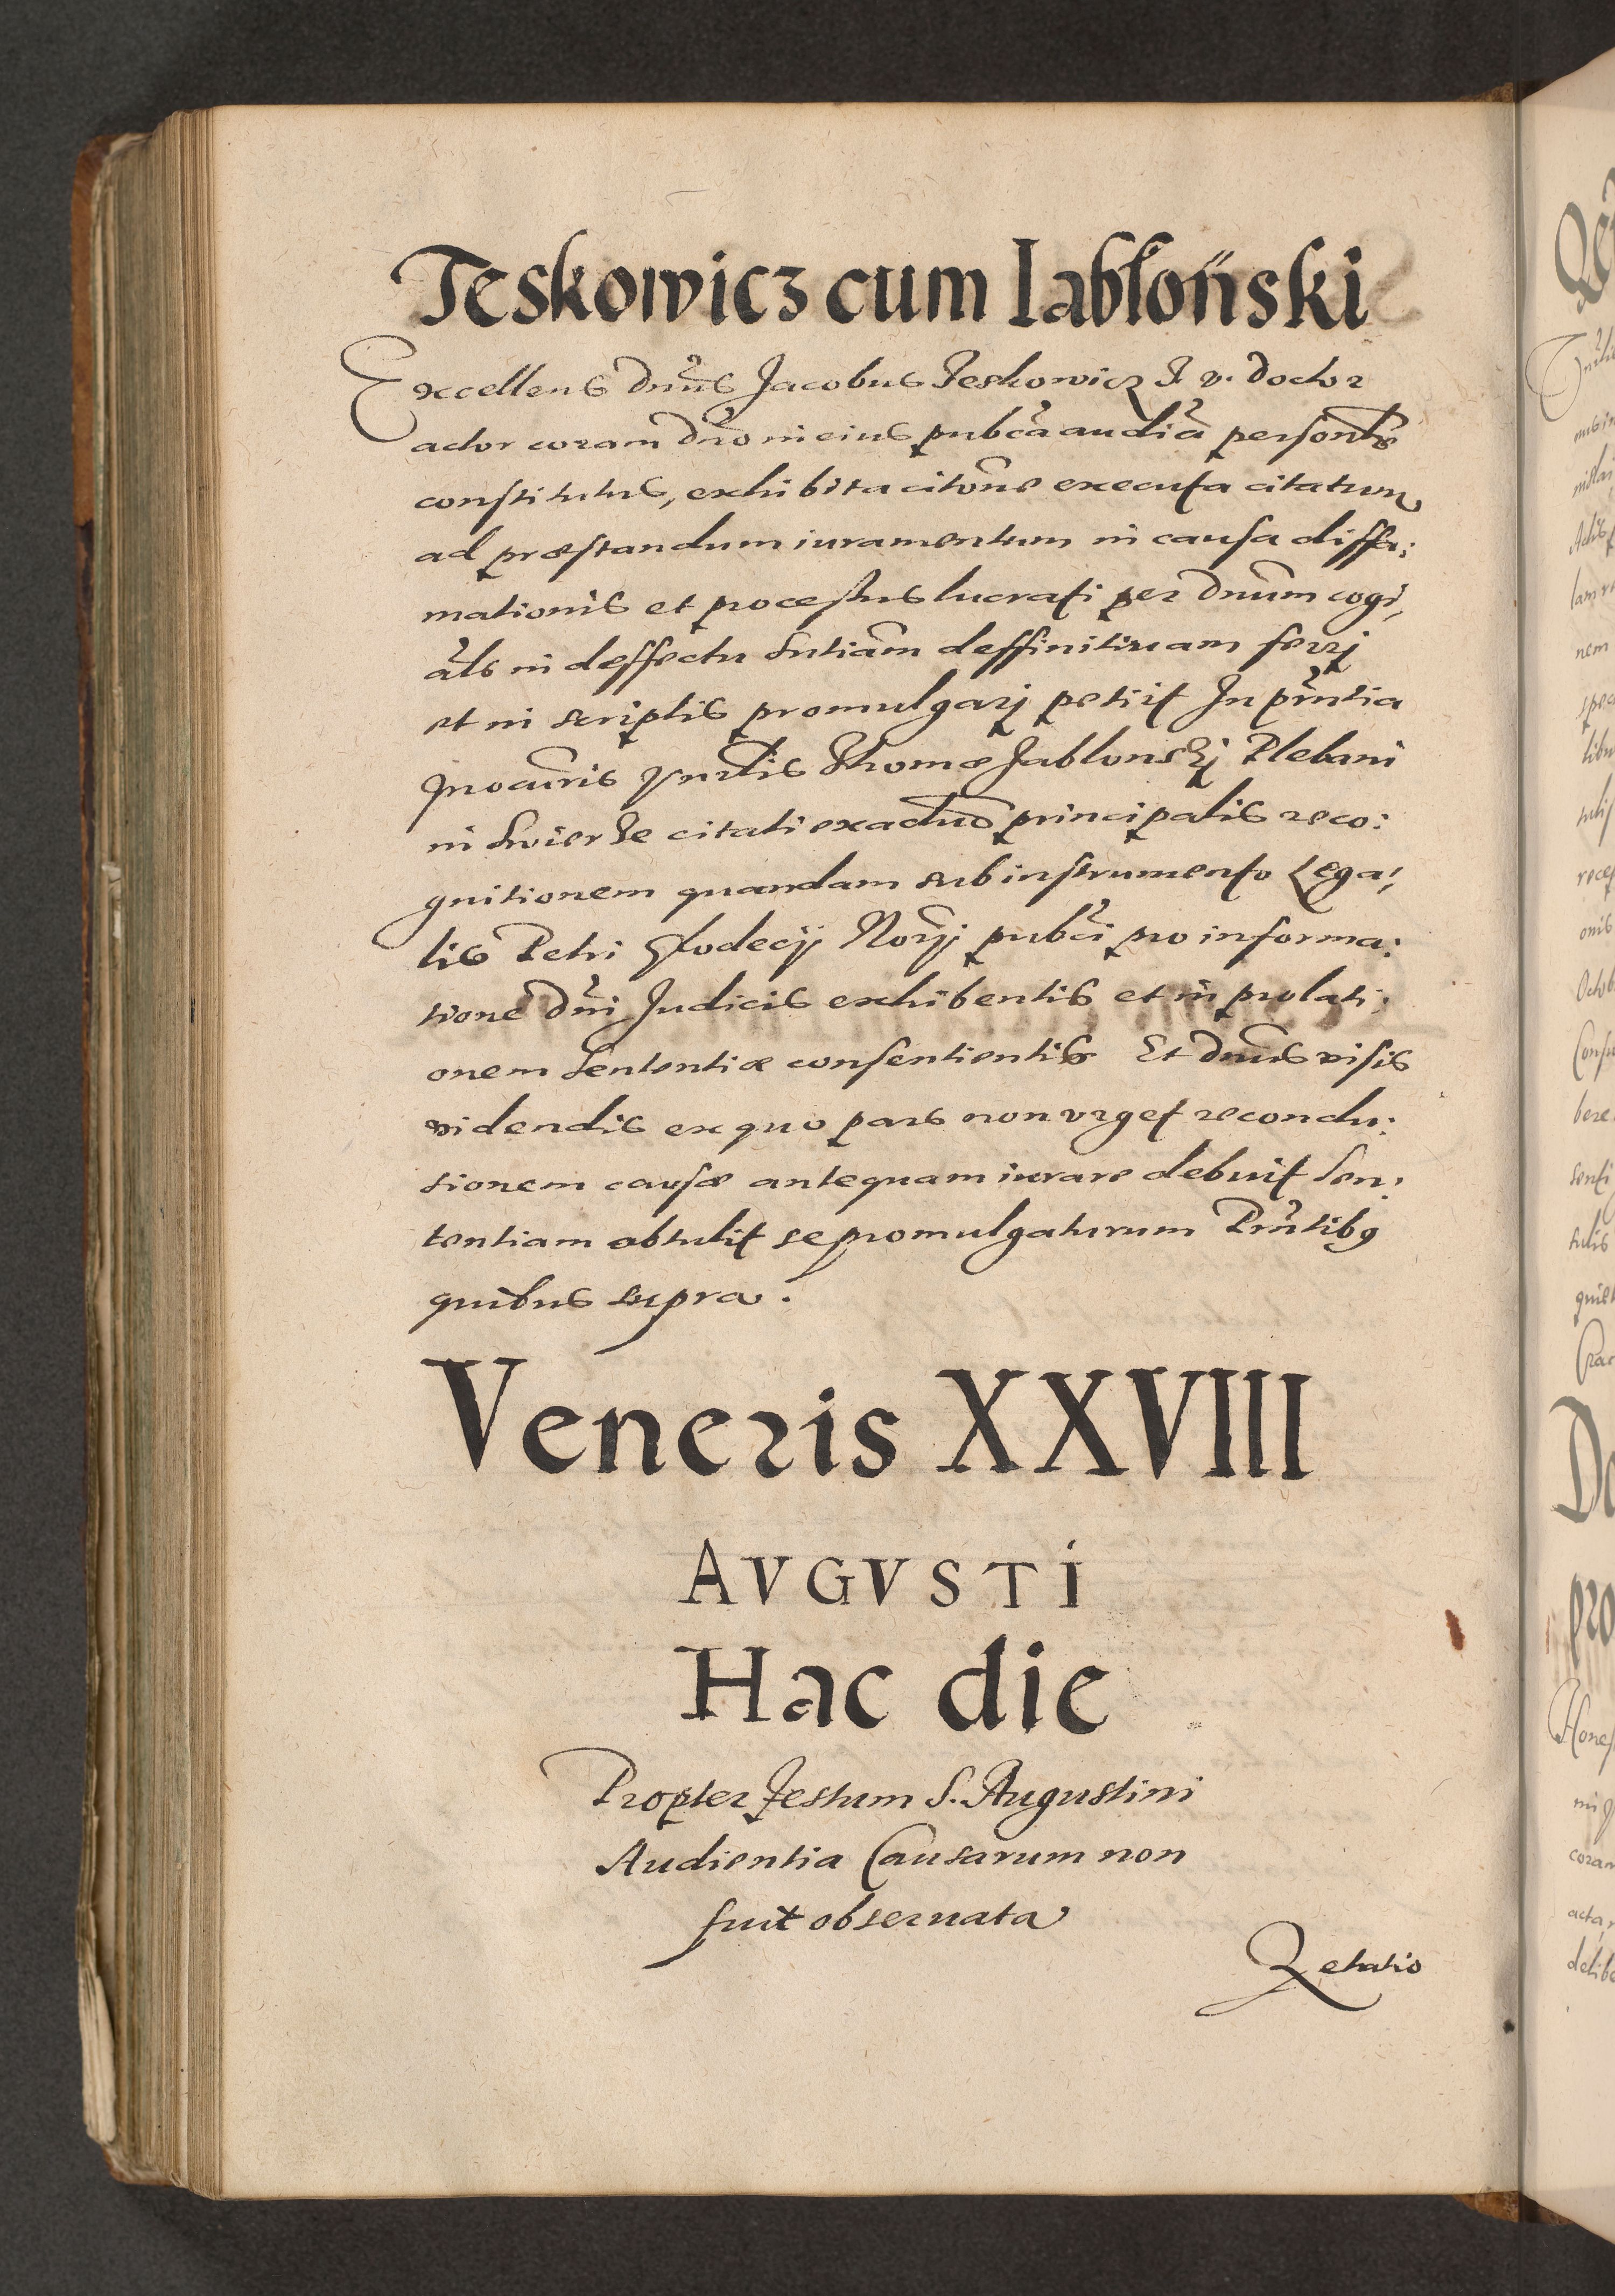 Teskowicz cum Iabłoński
Excellens Dnus Jacobus Teskowicz J. v. Doctor
actor coram Dno in eius pubca audia personlr
constitutus, exhibita citone executa citatum
ad præstandum iuramentum in causa diffa:
mationis et processus lucrati per Dnum cogi,
als in deffectu sntiam deffinitiuam ferrj
et in scriptis promulgarj petiit In pntia
procuris Thomæ Jablonskj Plebani
in citati exactus principalis reco:
gnitionem quandam sub instrumento Lega:
lis Petri Glodecij Norij pubci pro informa:
tione Dni Judicis exhibentis et in prolati:
onem sententiæ consentientis Et Dnus visis
videndis ex quo pars non vrget reconclu:
sionem causæ antequam iurare debuit sen:
tentiam obtulit se promulgaturum Pntibq
quibus supra.
Veneris XXVIII
AVGVSTi
Hac die
Propter festum S. Augustini
Audientia Causarum non
fuit obseruata